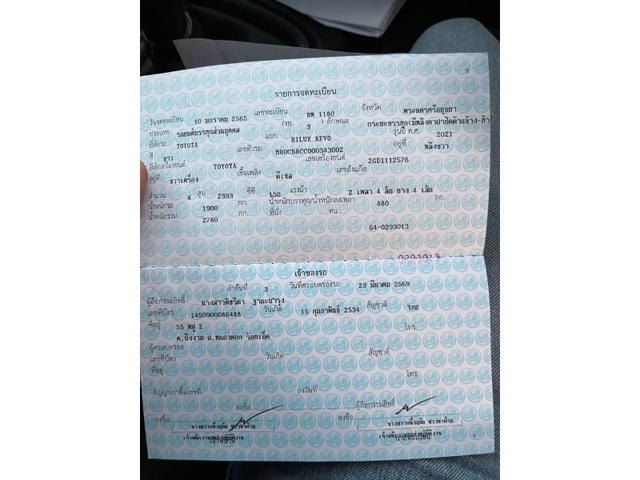 9
รายการจดทะเบียน
วันจดทะเบียน 10 มกราคม 2565 เลขทะเบียน จังหวัด พระนครศรีอยุธยา
ประเภท รถยนต์บรรทุกส่วนบุคคล (รย. 3 ) ลักษณะ กระบะบรรทุก
ยี่ห้อรถ TOYOTA แบบ HILUX REVO รุ่นปี ค.ศ. 2021
สี ขาว เลขตัวรถ
ยี่ห้อเครื่องยนต์ TOYOTA เลขเครื่องยนต์ 2GD1112576
อยู่ที่ ขวาเครื่อง เชื้อเพลิง ดีเซล เลขถังแก๊ส
จำนวน 4 สูบ 2393 ซีซี 150 แรงม้า 2 เพลา 4 ล้อ ยาง 4 เส้น
น้ำหนักรถ 1900 กก. น้ำหนักบรรทุก/น้ำหนักลงเพลา 880 กก.
น้ำหนักรวม 2780 กก. ที่นั่ง คน
64-0293013
เจ้าของรถ
ลำดับที่ 3 วันที่ครอบครองรถ 23 มีนาคม 2569
ผู้ถือกรรมสิทธิ์ นางสาวพัชริดา
เลขที่บัตร 1450900086488 วันเกิด 15 กุมภาพันธ์ 2534 สัญชาติ ไทย
ที่อยู่ 55 หมู่ 2 โทร.
ต.บึงงาม อ.หนองพอก ร้อยเอ็ด
ผู้ครอบครอง
เลขที่บัตร วันเกิด สัญชาติ
ที่อยู่ โทร.
สัญญาเช่าซื้อเลขที่ ลงวันที่
ลงชื่อ ผู้ถือกรรมสิทธิ์ ลงชื่อ
9